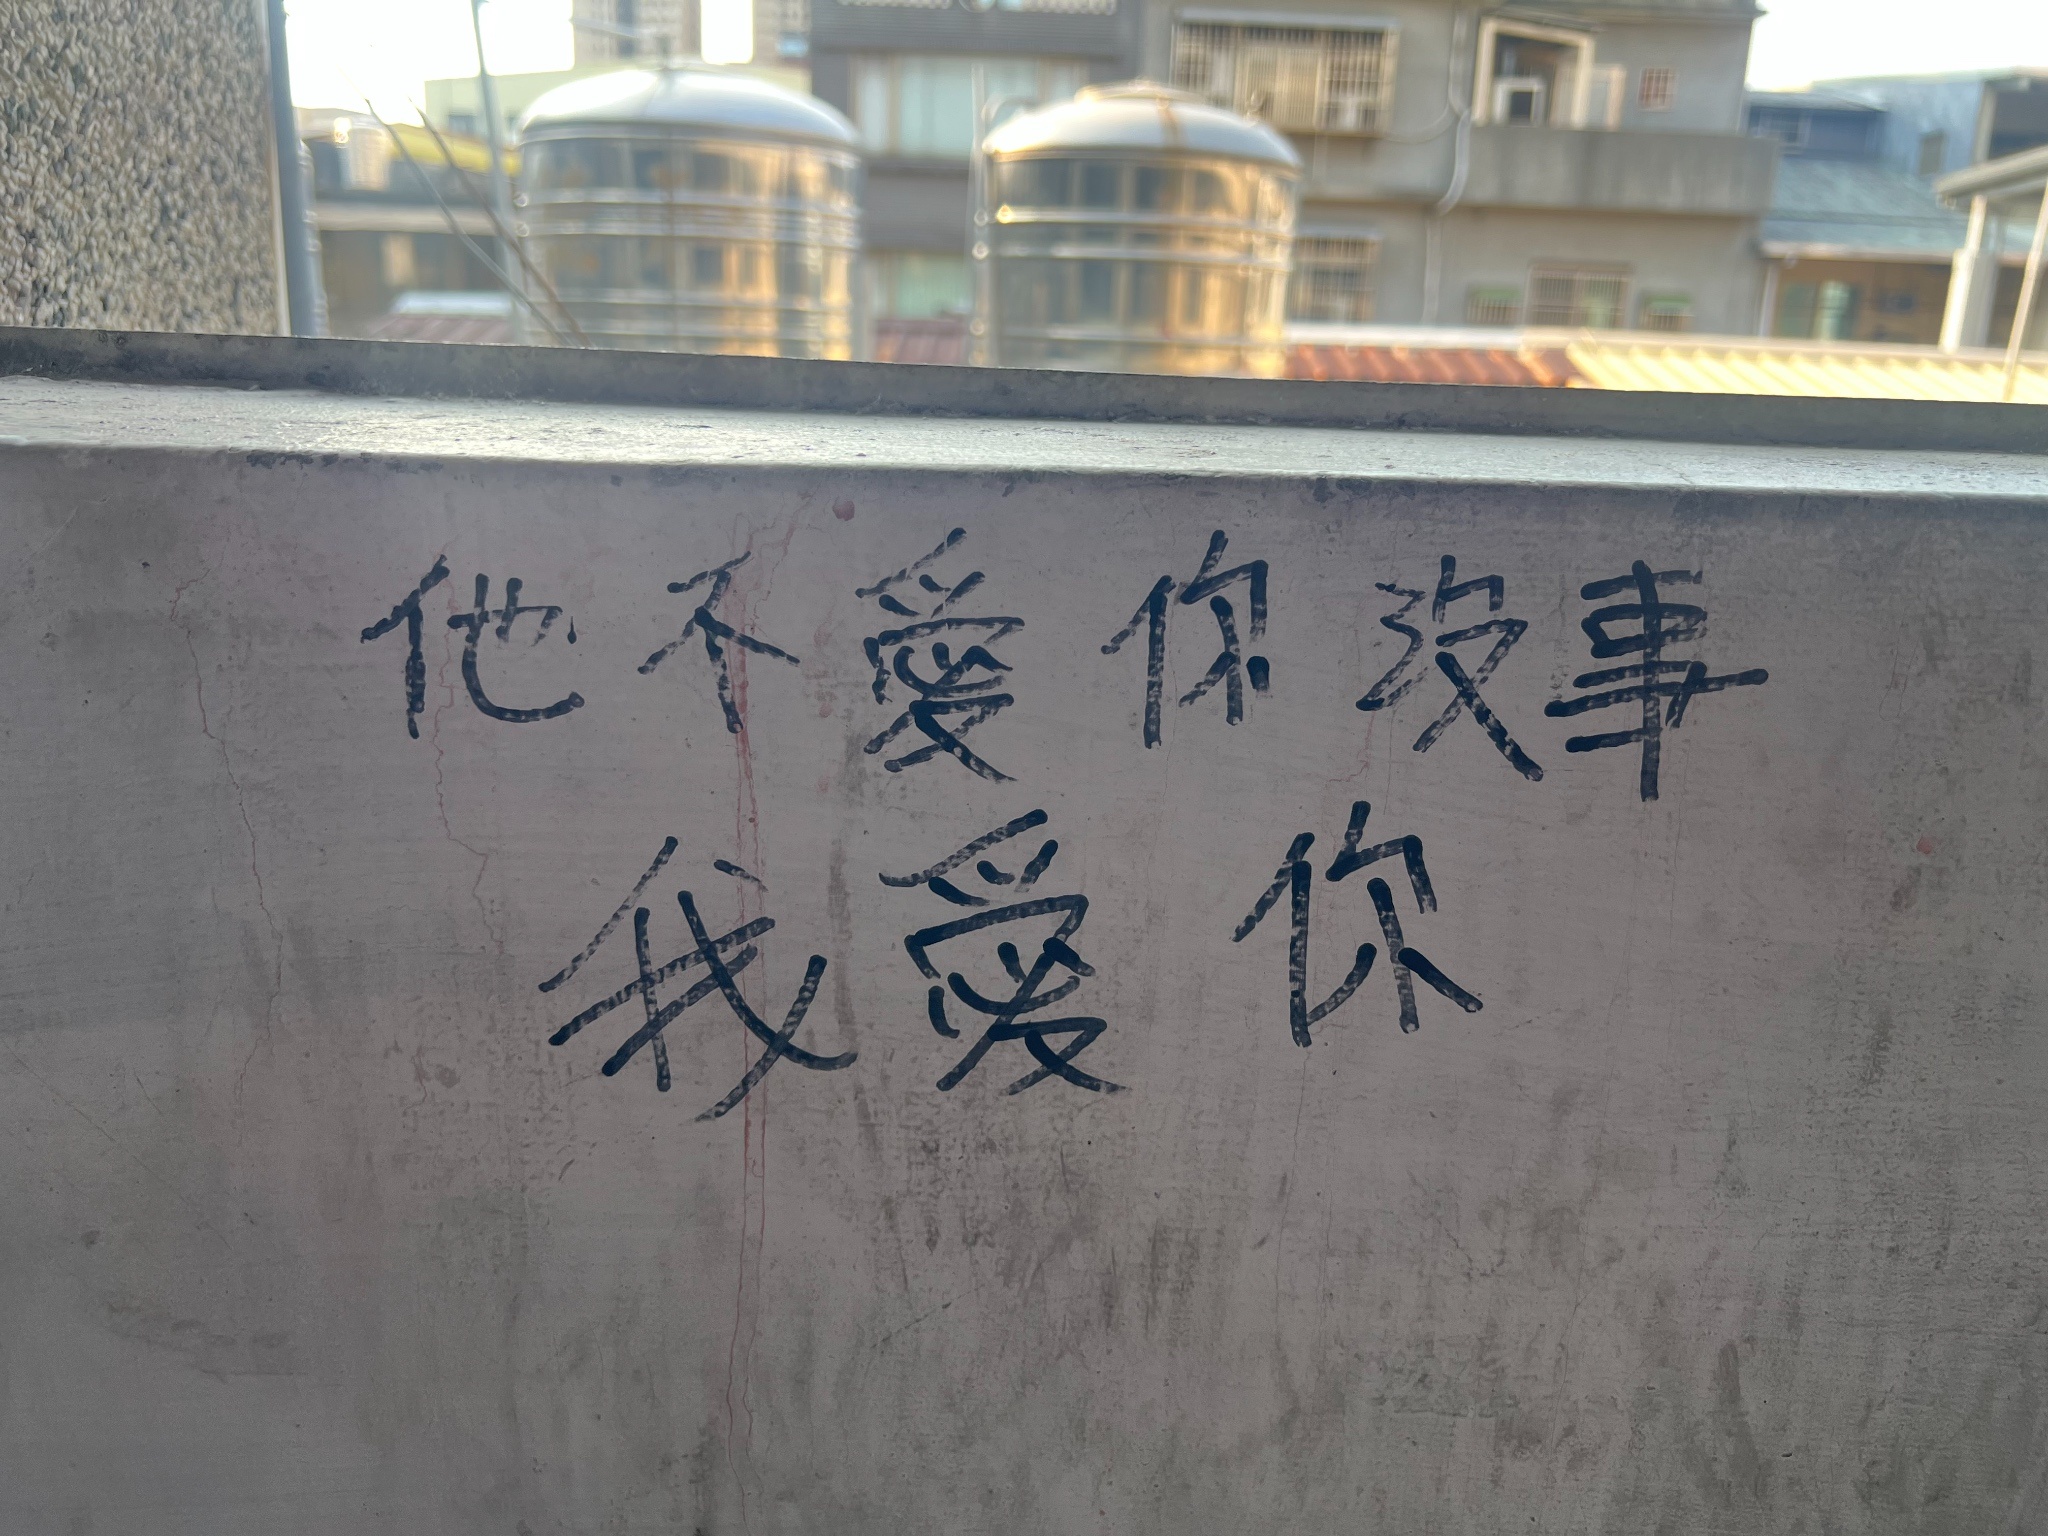 他不愛你沒事
我愛你